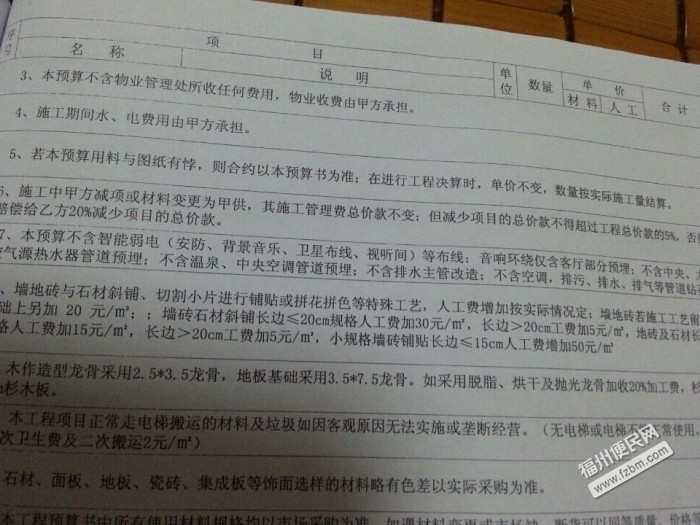 序号
项 目
名 称
说 明
单位
数量
单 价
材料
人工
合计
3、本预算不含物业管理处所收任何费用，物业收费由甲方承担。
4、施工期间水、电费用由甲方承担。
5、若本预算用料与图纸有悖，则合约以本预算书为准；在进行工程决算时，单价不变，数量按实际施工量结算。
6、施工中甲方减项或材料变更为甲供，其施工管理费总价款不变；但减少项目的总价款不得超过工程总价款的5%，否
赔偿给乙方20%减少项目的总价款。
7、本预算不含智能弱电（安防、背景音乐、卫星布线、视听间）等布线；音响环绕仅含客厅部分预埋；不含中央、
气源热水器管道预埋；不含温泉、中央空调管道预埋；不含排水主管改造；不含空调，排污、排水、排气等管道钻
、墙地砖与石材斜铺、切割小片进行铺贴或拼花拼色等特殊工艺，人工费增加按实际情况定；墙地砖若施工工艺留
础上另加 20 元/m²；；墙砖石材斜铺长边≤20cm规格人工费加30元/m²，长边>20cm工费加5元/m²，地砖及石材长
格人工费加15元/m²，长边>20cm工费加5元/m²，小规格墙砖铺贴长边≤15cm人工费增加50元/m²
木作造型龙骨采用2.5*3.5龙骨，地板基础采用3.5*7.5龙骨。如采用脱脂、烘干及抛光龙骨加收20%加工费，杉
杉木板。
本工程项目正常走电梯搬运的材料及垃圾如因客观原因无法实施或垄断经营。（无电梯或电梯不能正常使用，
次卫生费及二次搬运2元/m²）
石材、面板、地板、瓷砖、集成板等饰面选样的材料略有色差以实际采购为准。
本工程预算书中所有使用材料规格均以市场采购为准，如遇材料变更或市场缺、断货可以同等质量、价格
福州便民网
www.fzbm.com